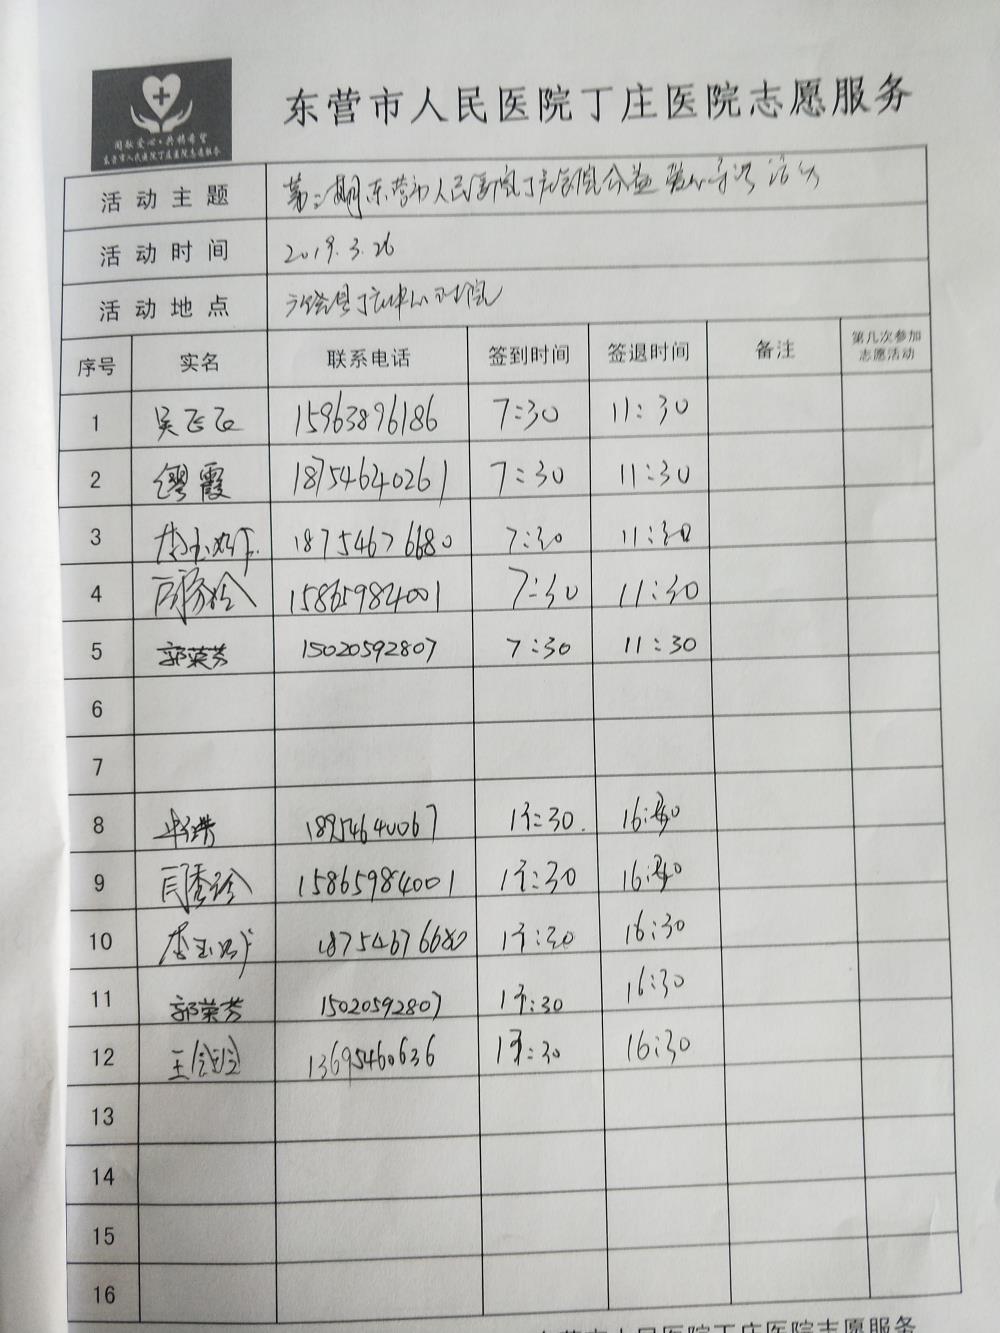 东营市人民医院丁庄医院志愿服务
东营市人民医院丁庄医院志愿服务
活动主题 第二期东营市人民医院丁庄医院公益 活动
活动时间 2019.3.26
活动地点 广饶县丁庄中心医院
序号 实名 联系电话 签到时间 签退时间 备注 第几次参加志愿活动
1 吴飞飞 15963896186 7:30 11:30
2 缪霞 18754640261 7:30 11:30
3 18754676680 7:30 11:30
4 15865984001 7:30 11:30
5 郭荣芳 15020592807 7:30 11:30
6
7
8 18954640067 13:30 16:30
9 闫秀玲 15865984001 13:30 16:30
10 18754676680 13:30 16:30
11 郭荣芳 15020592807 13:30 16:30
12 13695460636 13:30 16:30
13
14
15
16
东营市人民医院丁庄医院志愿服务